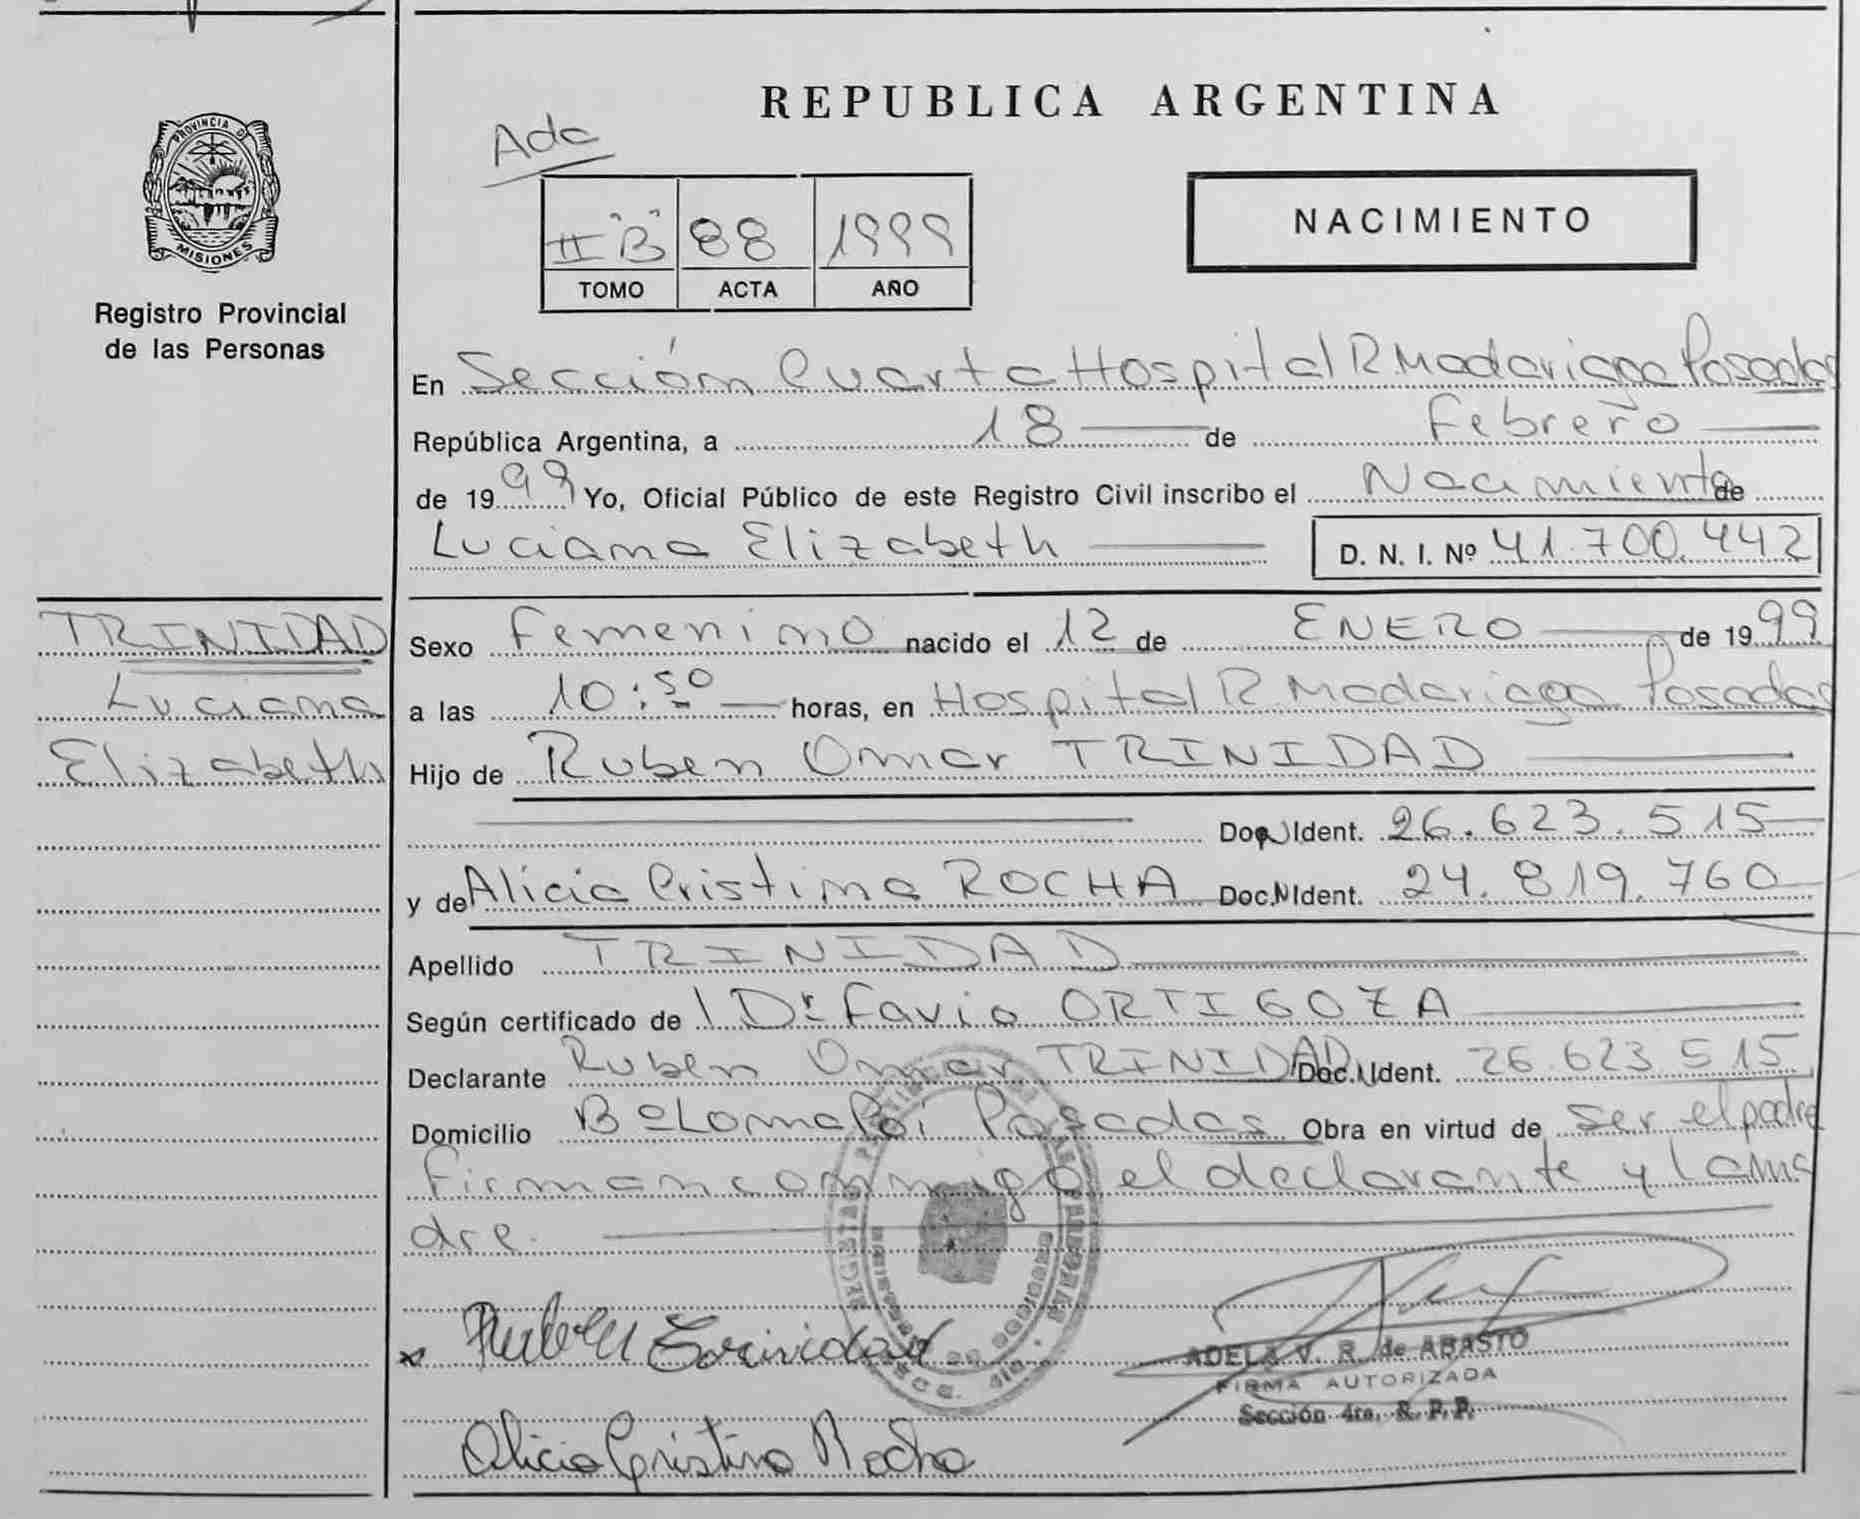 REPUBLICA ARGENTINA
PROVINCIA D
MISIONES
Registro Provincial
de las Personas
Ada
II "B" 88 1999
TOMO ACTA AÑO
NACIMIENTO
En Sección Cuarta Hospital R Madariaga Posadas
República Argentina, a 18 de Febrero
de 1999 Yo, Oficial Público de este Registro Civil inscribo el Nacimiento de
Luciana Elizabeth D. N. I. Nº 41.700.442
TRINIDAD
Luciana
Elizabeth
Sexo Femenino nacido el 12 de ENERO de 1999
a las 10:50 horas, en Hospital R Madariaga Posadas
Hijo de Ruben Omar TRINIDAD
Doc. Ident. 26.623.515
y de Alicia Cristina ROCHA Doc.NIdent. 24.819.760
Apellido TRINIDAD
Según certificado de l Dr Favio ORTIGOZA
Declarante Ruben Omar TRINIDAD Doc.NIdent. 26.623.515
Domicilio Bº Loma Poi Posadas Obra en virtud de ser el padre
Firman conmigo el declarante y la ma
dre.
Ruben Trinidad
ADELA V. R. de ABASTO
FIRMA AUTORIZADA
Sección 4ta. R. P. P.
Alicia Cristina Rocha